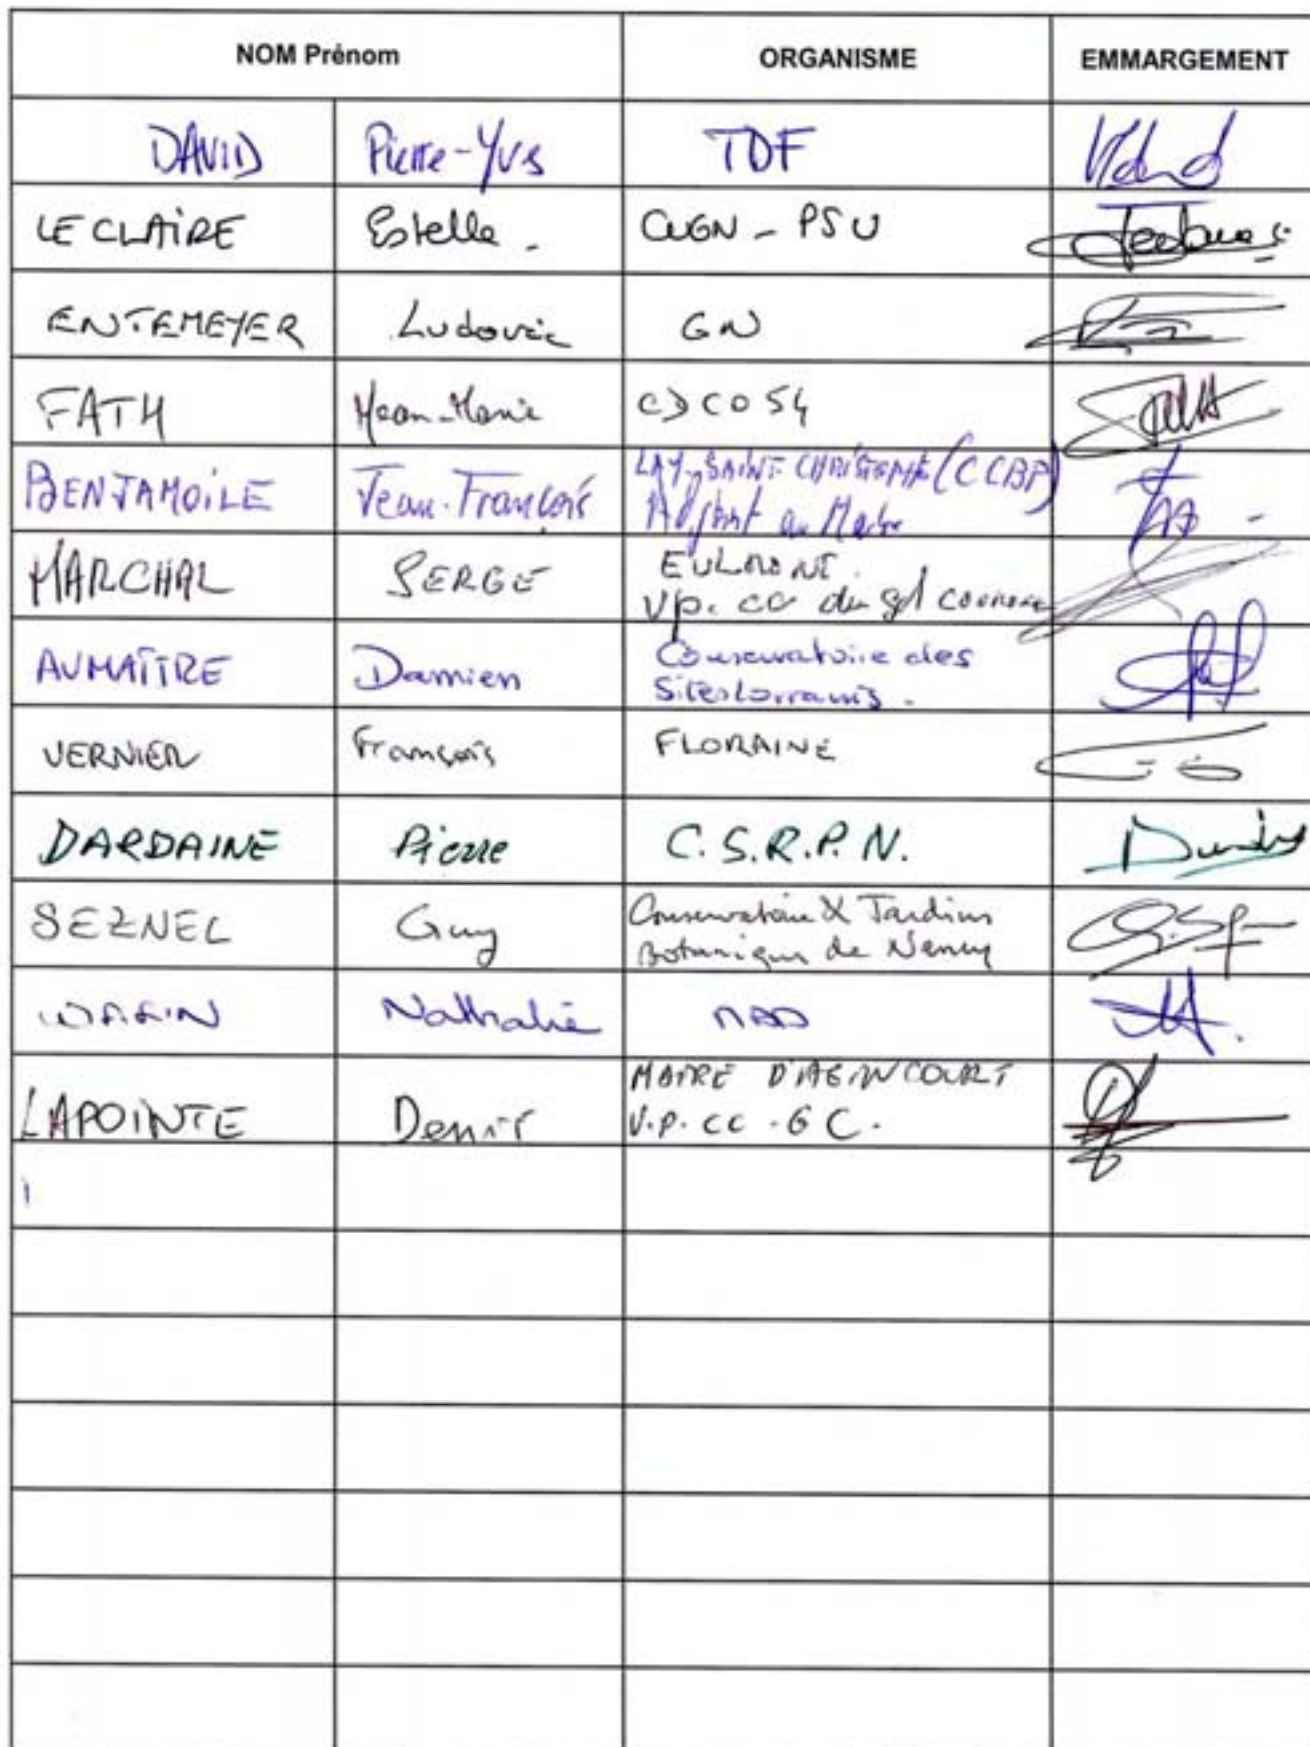 NOM Prénom ORGANISME EMMARGEMENT
DAVID Pierre-Yves TDF
LECLAIRE Estelle - CUGN - PSU
ENTEMEYER Ludovic GN
FATH Jean-Marie CDCO 54
BENJAMOILE Jean-François LAY-SAINT CHRISTOPHE (CCBP)
Adjoint au Maire
MARCHAL SERGE EULMONT.
Vp. CC du Gd Couronné
AUMAÎTRE Damien Conservatoire des
Sites Lorrains.
VERNIER François FLORAINE
DARDAINE Pierre C.S.R.P.N.
SEZNEL Guy Conservatoire & Jardins
Botanique de Nancy
Nathalie
LAPOINTE Denis MAIRE D'AGINCOURT
V.P. CC - G C.